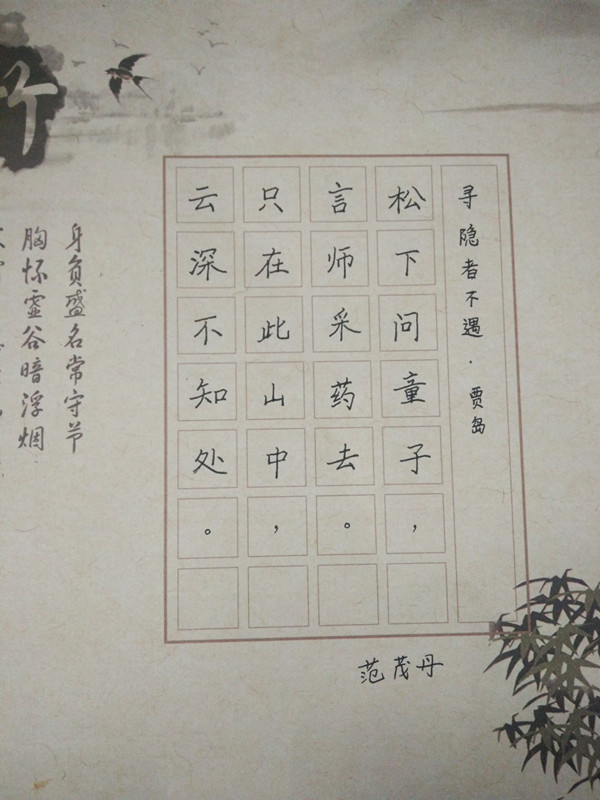 寻隐者不遇·贾岛
松下问童子，
言师采药去。
只在此山中，
云深不知处。
范茂丹
身负盛名常守节
胸怀虚谷暗浮烟